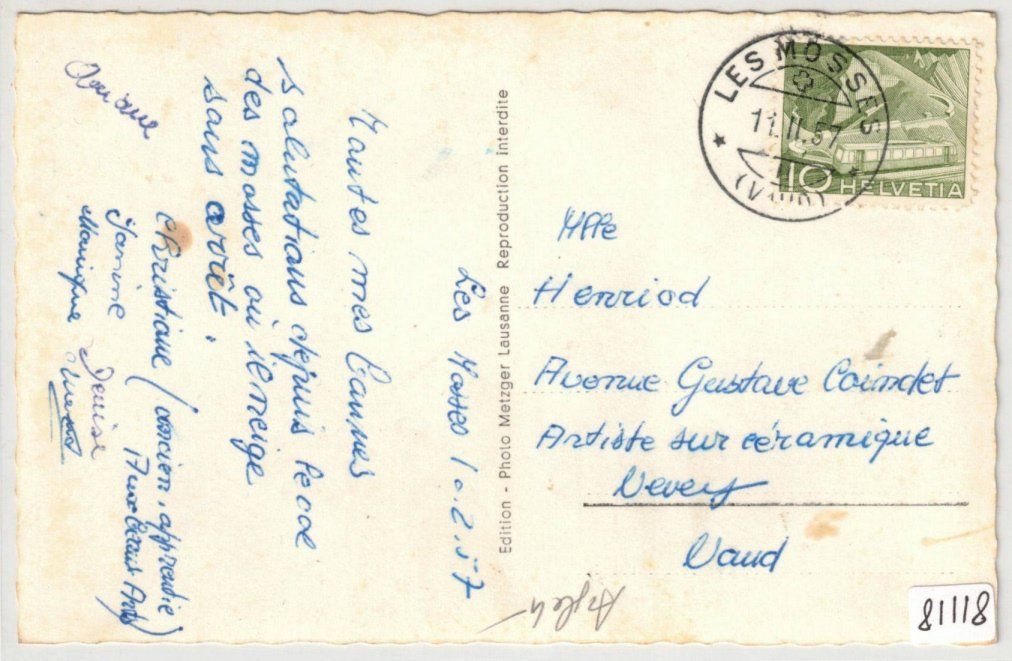 Les Mosses 10.2.57
Toutes mes bonnes
salutations depuis le col
des mosses où il neige
sans arrêt.
Christiane (ancien. apprentie)
Janine
Monique
Denise
Edition - Photo Metzger Lausanne Reproduction interdite
LES MOSSES
11.II.57
(VAUD)
10 HELVETIA
Mlle
Henriod
Avenue Gustave Coindet
Artiste sur céramique
Vevey
Vaud
81118